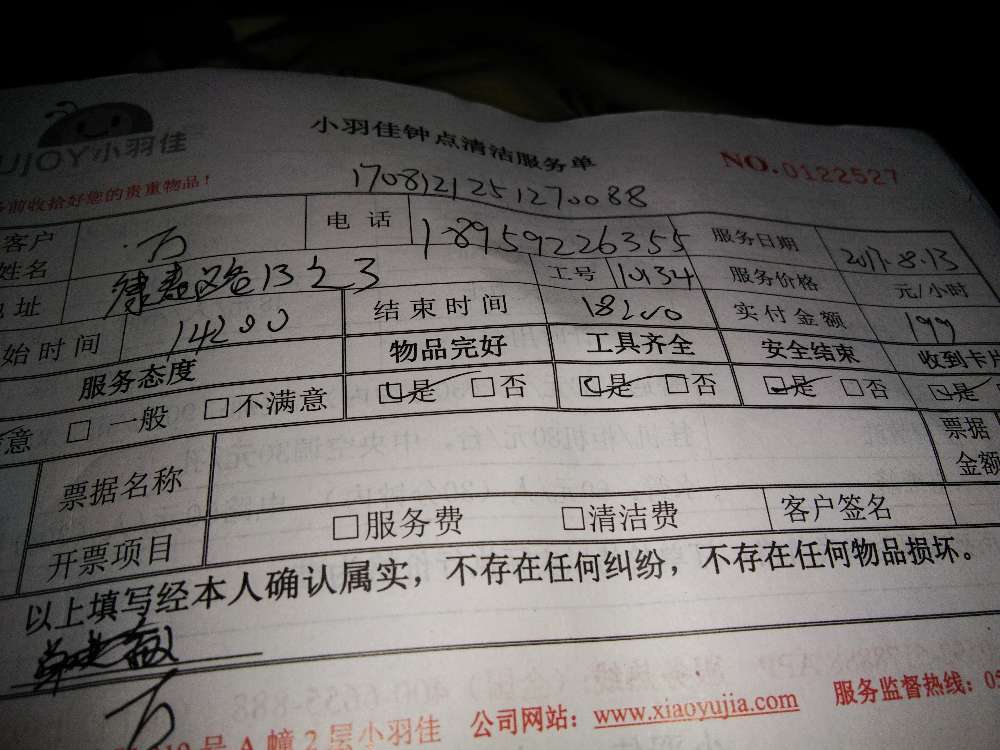 UJOY小羽佳
小羽佳钟点清洁服务单
NO.0122527
前收拾好您的贵重物品!
1708121251270088
客户姓名 万 电话 18959226355 服务日期 2017.8.13
地址 13之3 工号 10134 服务价格 元/小时
始时间 14:00 结束时间 18:00 实付金额 199
服务态度 物品完好 工具齐全 安全结束 收到卡片
意 □一般 □不满意 □是 □否 □是 □否 □是 □否 □是
票据名称 票据金额
开票项目 □服务费 □清洁费 客户签名
以上填写经本人确认属实，不存在任何纠纷，不存在任何物品损坏。
万
号A幢2层小羽佳 公司网站：www.xiaoyujia.com 服务监督热线：05